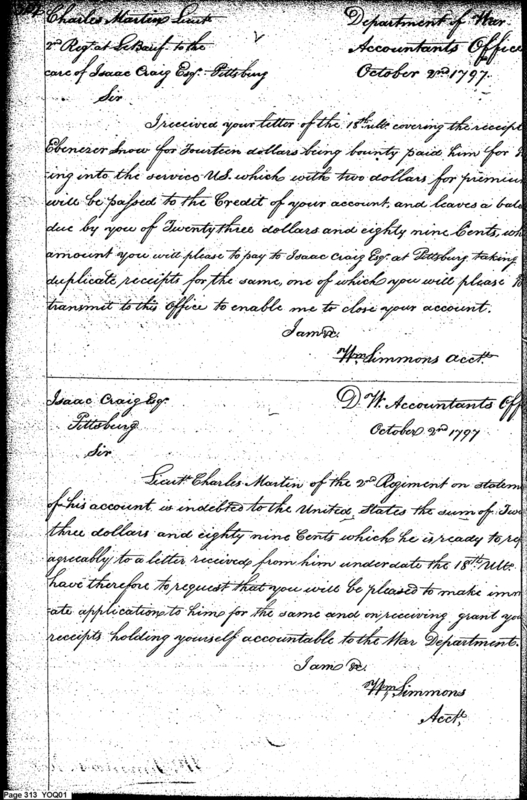 Charles Martin Lieut
2d Regt. at LeBeuf to the
care of Isaac Craig Esqr. Pittsburg
Department of War
Accountants Office
October 2nd 1797.
Sir
I received your letter of the 18th ulto. covering the receipt
Ebenezer Snow for Fourteen dollars being bounty paid him for
ing into the service U.S. which with two dollars for premium
will be passed to the Credit of your account, and leaves a bala
due by you of Twenty three dollars and eighty nine Cents, wh
amount you will please to pay to Isaac Craig Esqr. at Pittsburg taking
duplicate receipts for the same, one of which you will please
transmit to this Office to enable me to close your account.
I am &c.
Wm. Simmons Acctt.
Isaac Craig Esqr.
Pittsburg
D. W. Accountants Off
October 2nd 1797
Sir
Lieutt. Charles Martin of the 2d Regiment on statem
of his account is indebted to the United States the sum of Twe
three dollars and eighty nine Cents which he is ready to
agreeably to a letter received from him under date the 18th Ulto.
have therefore to request that you will be pleased to make imm
ate application to him for the same and on receiving grant you
receipts holding yourself accountable to the War Department.
I am &c.
Wm. Simmons
Acctt.
Page 313 YOQ01